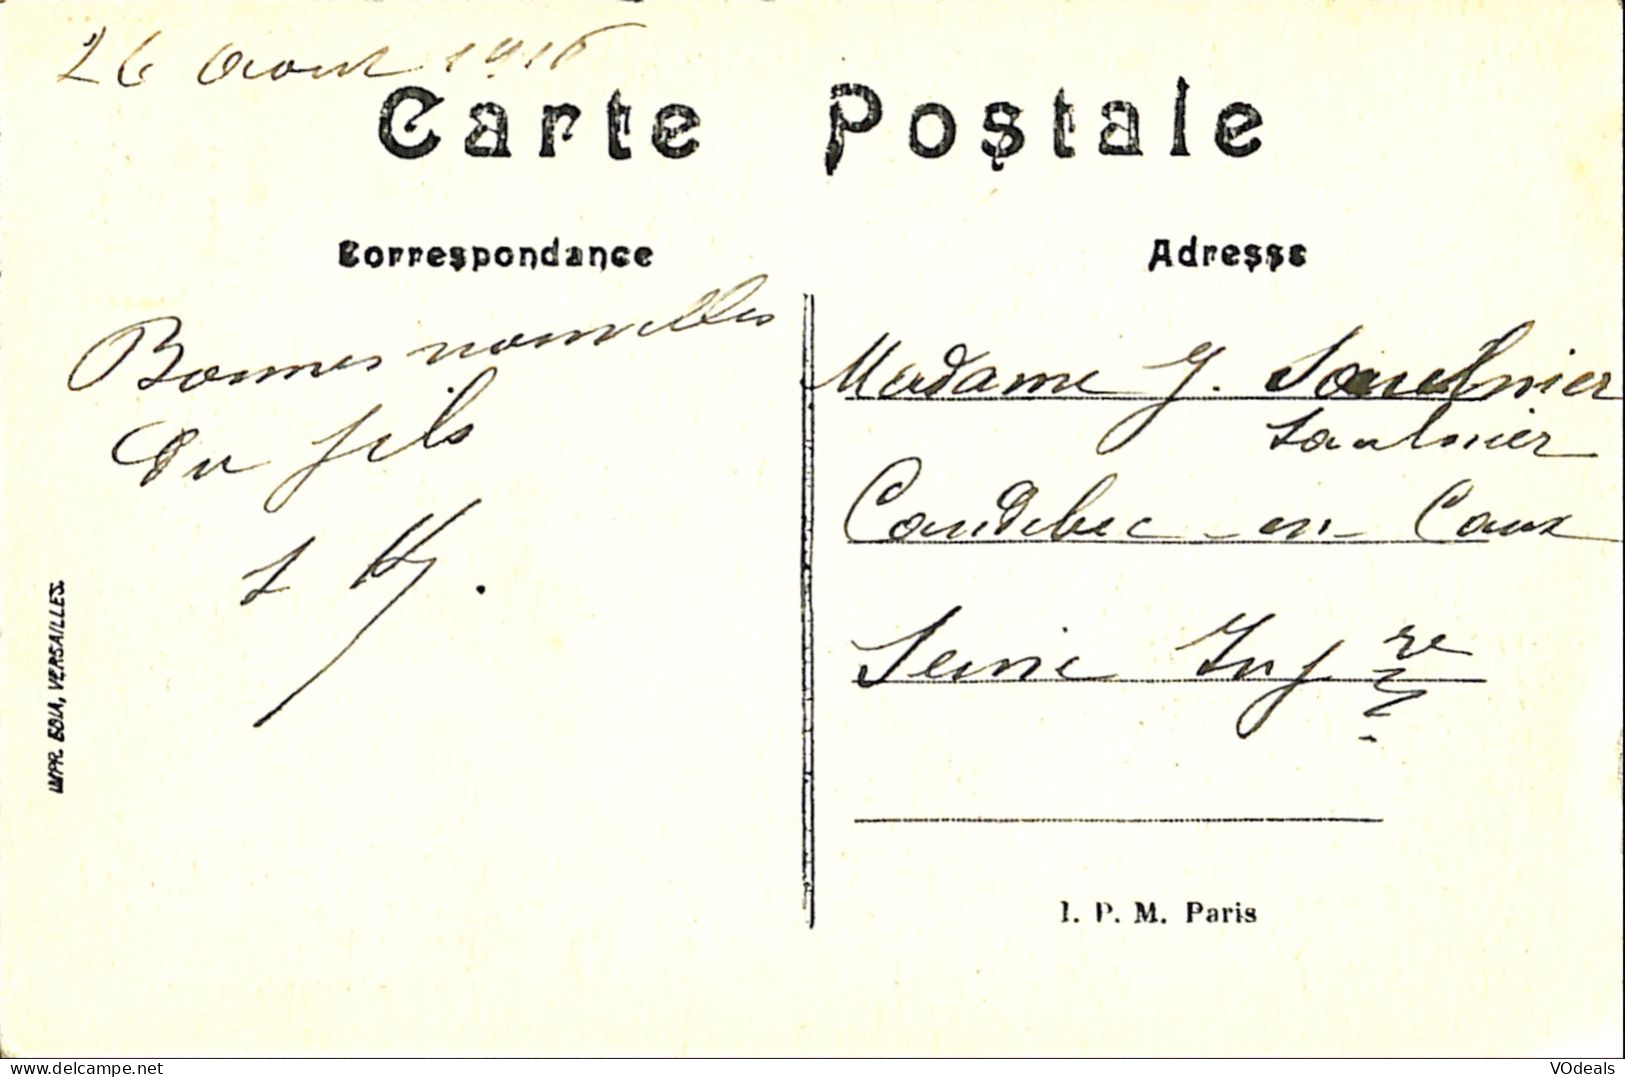 26 Aout 1916
Carte Postale
Correspondance
Adresse
Bonnes nouvelles
du fils
Madame J. Saulnier
Saulnier
Caudebec-en-Caux
Seine Infre
IMPR. EDIA, VERSAILLES.
I. P. M. Paris
VOdeals